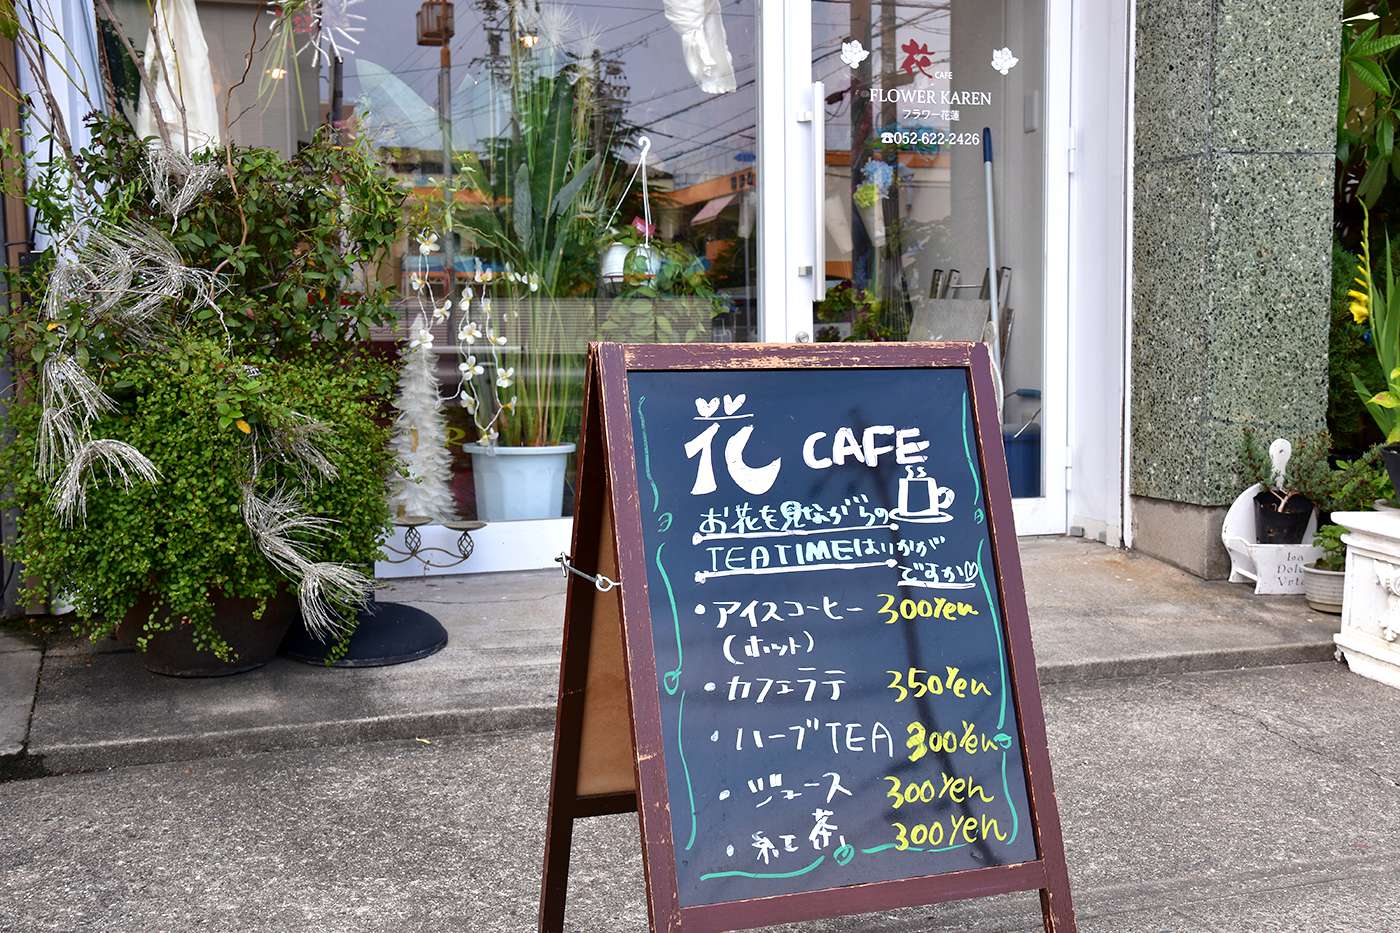 花 CAFE
FLOWER KAREN
フラワー花蓮
☎052-622-2426
花 CAFE
お花を見ながらの
TEA TIMEはいかが
ですか♡
・アイスコーヒー 300Yen
(ホット)
・カフェラテ 350Yen
・ハーブTEA 300Yen
・ジュース 300Yen
・紅茶 300Yen
La
Dolce